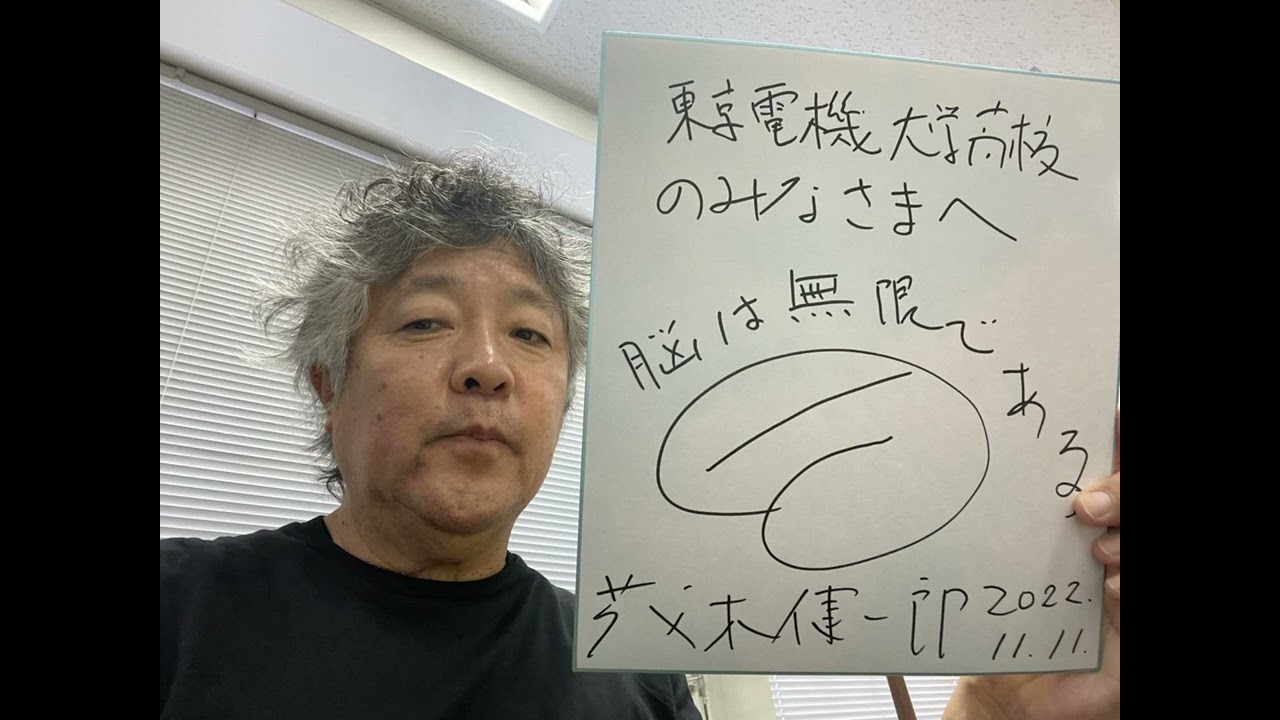 東京電機大学高校
のみなさまへ
脳は無限である
茂木健一郎 2022.
11.11.